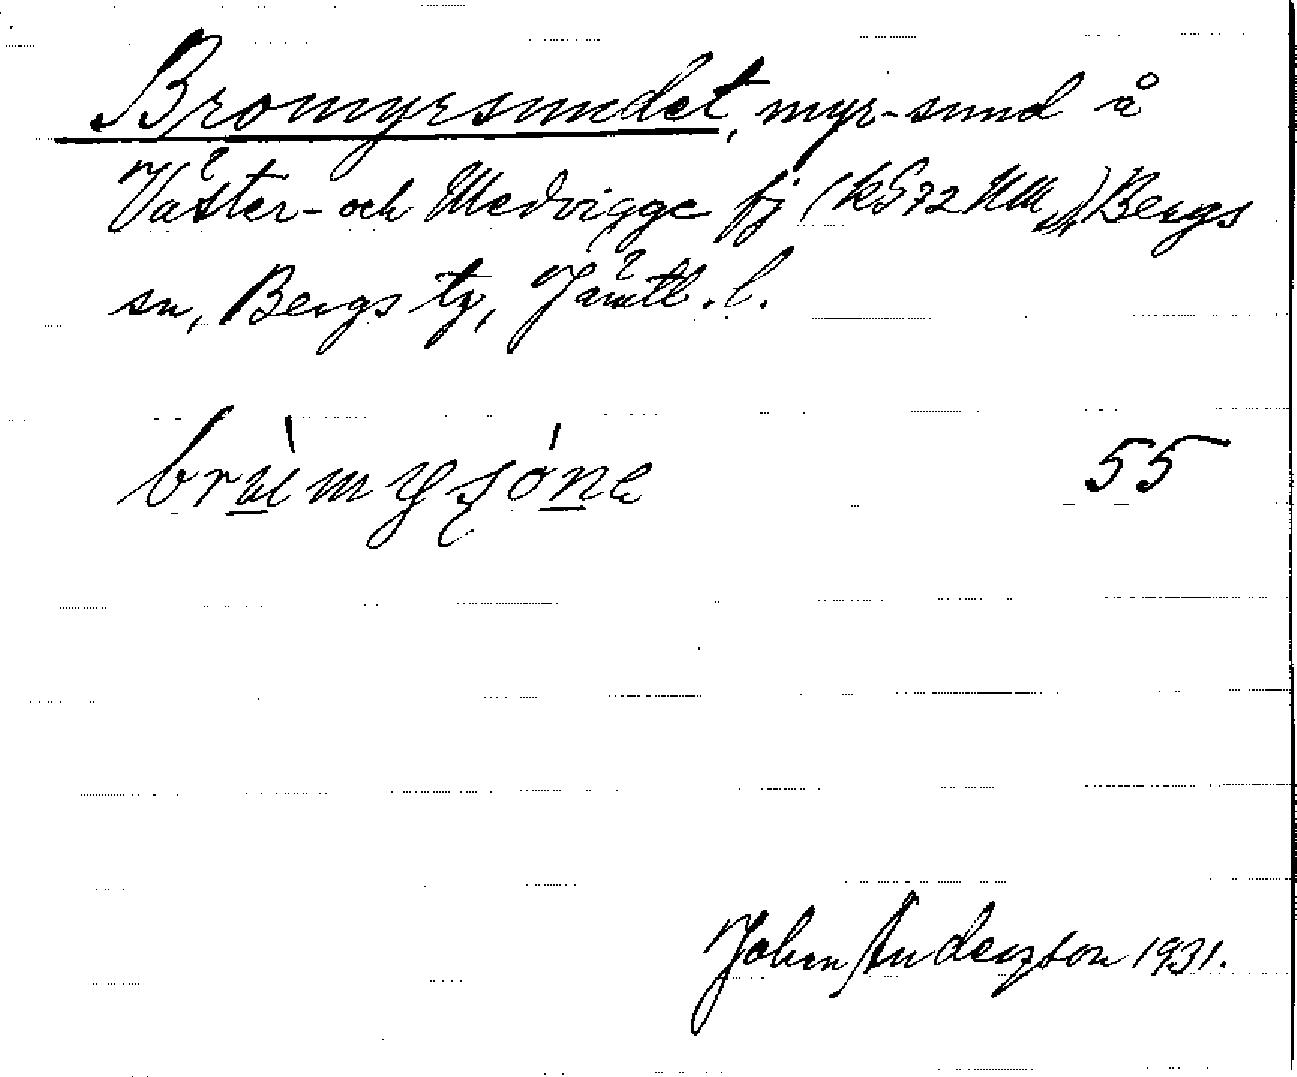 Bromyrsundet, myr-sund å
Väster- och Medvigge fj (kS72 NM,) Bergs
sn, Bergs tg, Jämtl. l.
brùimyʂóne 55
John Anderzson 1931.